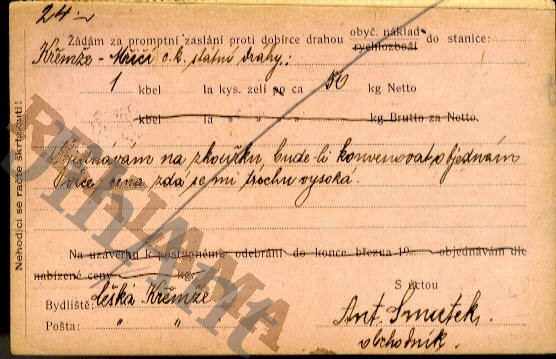 24-
Žádám za promptní zaslání proti dobírce drahou obyč. náklad do stanice:
rychlozboží
Křemže - Mříčí c.k. státní dráhy:
1 kbel Ia kys. zelí po ca 50 kg Netto
kbel Ia " " " kg Brutto za Netto.
Objednávám na zkoušku, bude-li konvenovat, objednám
více, cena zdá se mi trochu vysoká.
Na uzávěrku k postupnému odebrání do konce března 19 objednávám dle
nabízené ceny kg:
S úctou
Bydliště: Křemže
Pošta: " "
Ant. Smutek.
obchodník.
Nehodící se račte škrtnouti!